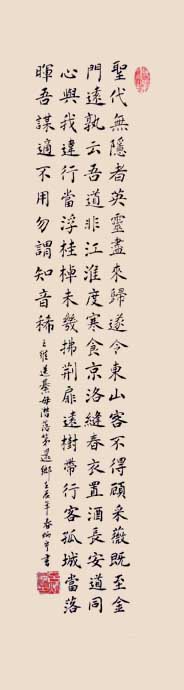 聖代無隱者英靈盡來歸遂令東山客不得顧采薇既至金
門遠孰云吾道非江淮度寒食京洛縫春衣置酒長安道同
心與我違行當浮桂棹未幾拂荊扉遠樹帶行客孤城當落
暉吾謀適不用勿謂知音稀 王維送綦毋潛落第還鄉 壬辰年春 書